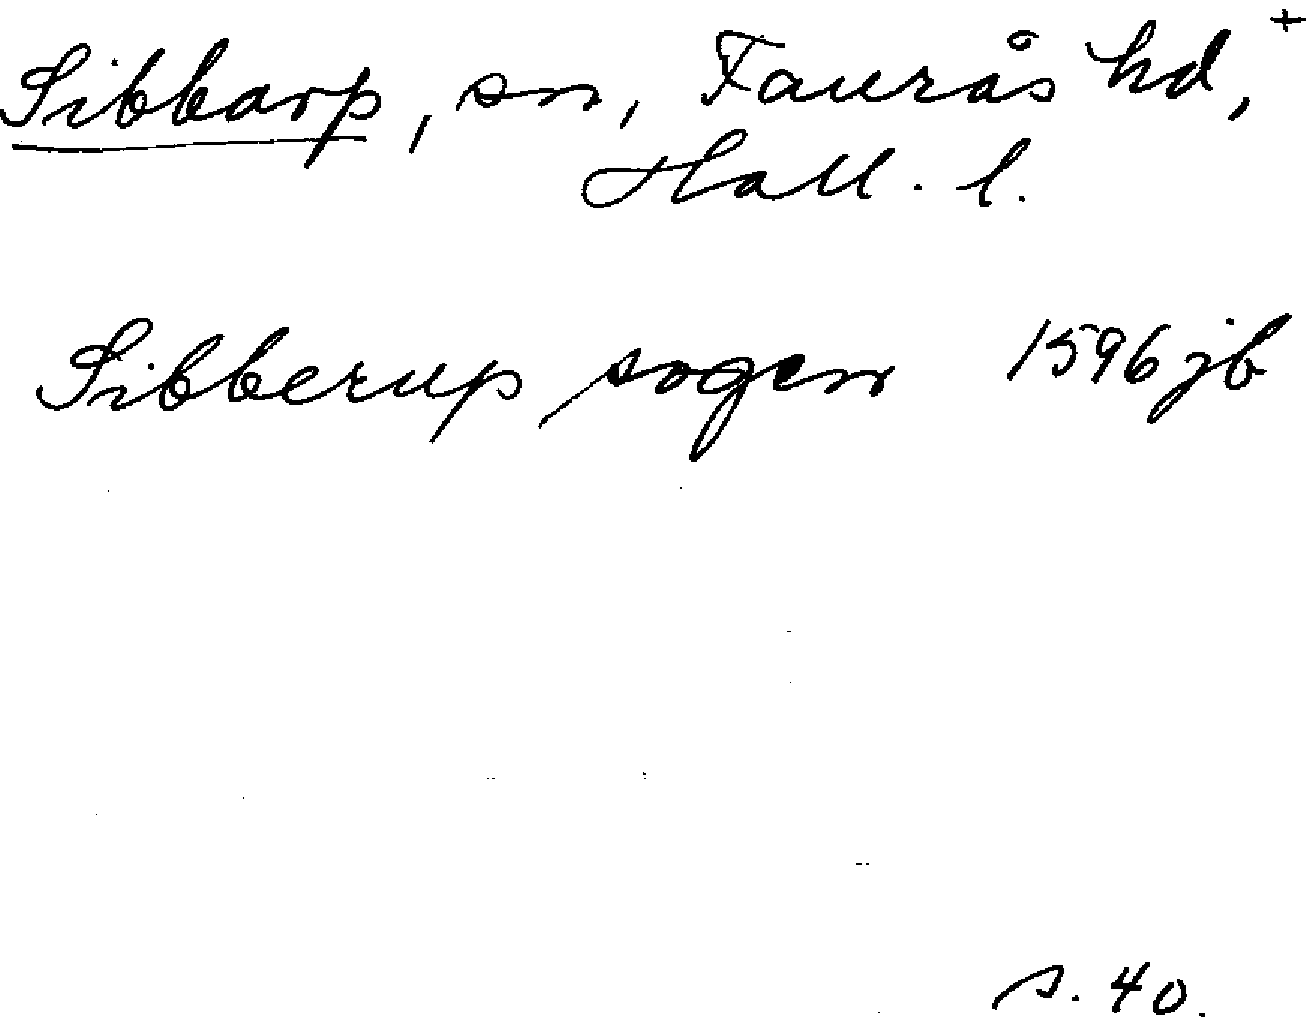 Sibbarp, sn, Faurås hd, +
Hall. l.
Sibberup sogen 1596 jb
s. 40.